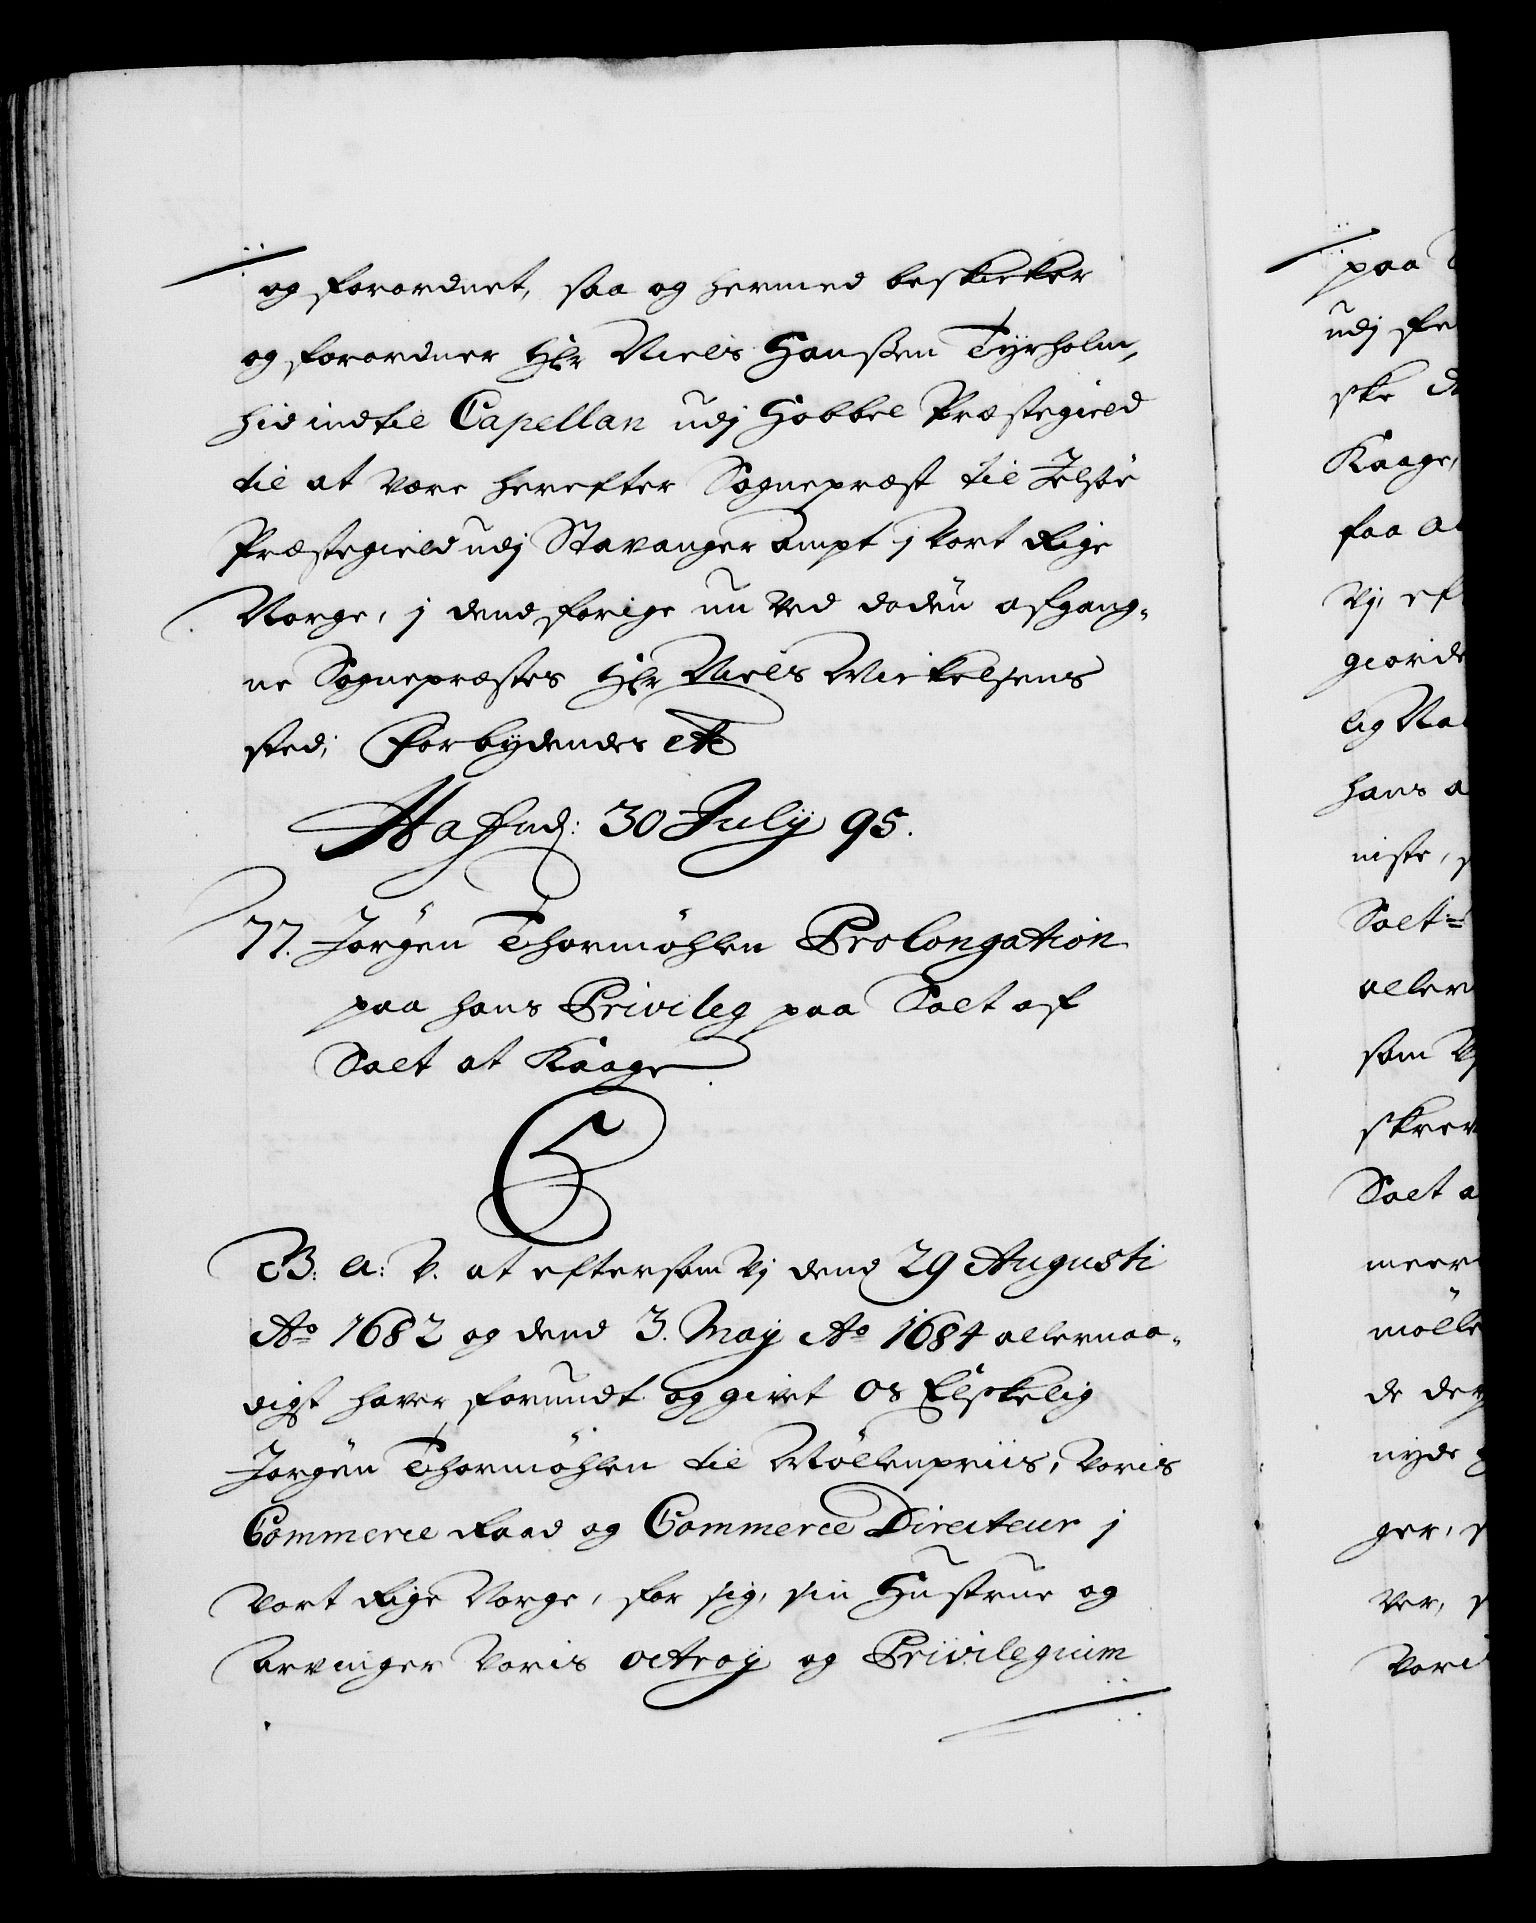 og forordnet, saa og hermed beskicker
og forordner Hr Niels Hanßen Tÿrholm,
hid indtil Capellan udj Hobbel Præstegield
til at være herefter Sognepræst til Jelsöe
Præstegield udj Stavanger Ampt j Vort Rige
Norge, j dend forige nu ved döden afgang-
ne Sognepræstes Hr Niels Mickelsens
sted; Forbydendes etc
Hafnd: 30 Julÿ 95.
77. Jörgen Thormöhlen Prolongation
paa hans Privileg paa Salt af
Salt at Kaage
C5
G: A: V. at eftersom Vj dend 29 Augusti
Ao 1682 og dend 3. Maÿ Ao 1684 allernaa-
digst hafver forundt og givet Os Elskelig
Jörgen Thormöhlen til Möllenpriis, Voris
Commerce Raad og Commerce Directeur j
Vort Rige Norge, for sig, sin Hustrue og
Arvinger Voris octroÿ og Privilegium
paa
udj
ske
Kaage,
faa
Vj, ef
giorde
lig Na
hans a
niste,
Salt=
aller
som V
skrev
Salt a
meer
mölle
de der
nyde
ger, s
ver, s
Vori